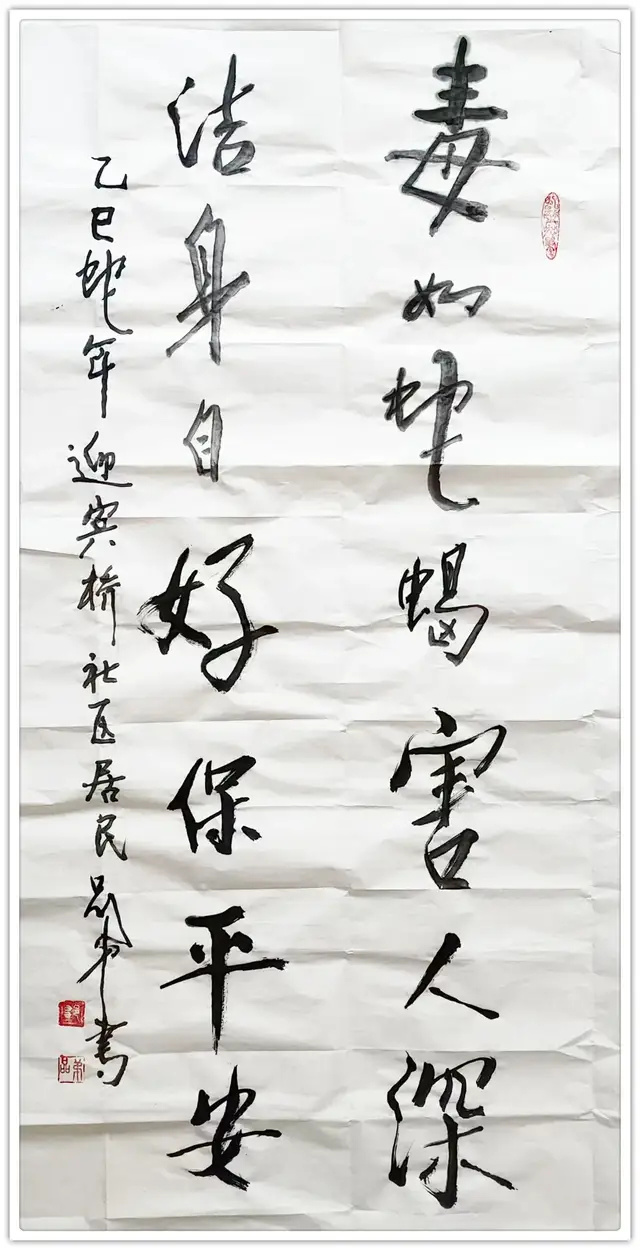 毒如蛇蝎害人深
洁身自好保平安
乙巳蛇年迎宾桥社区居民 书